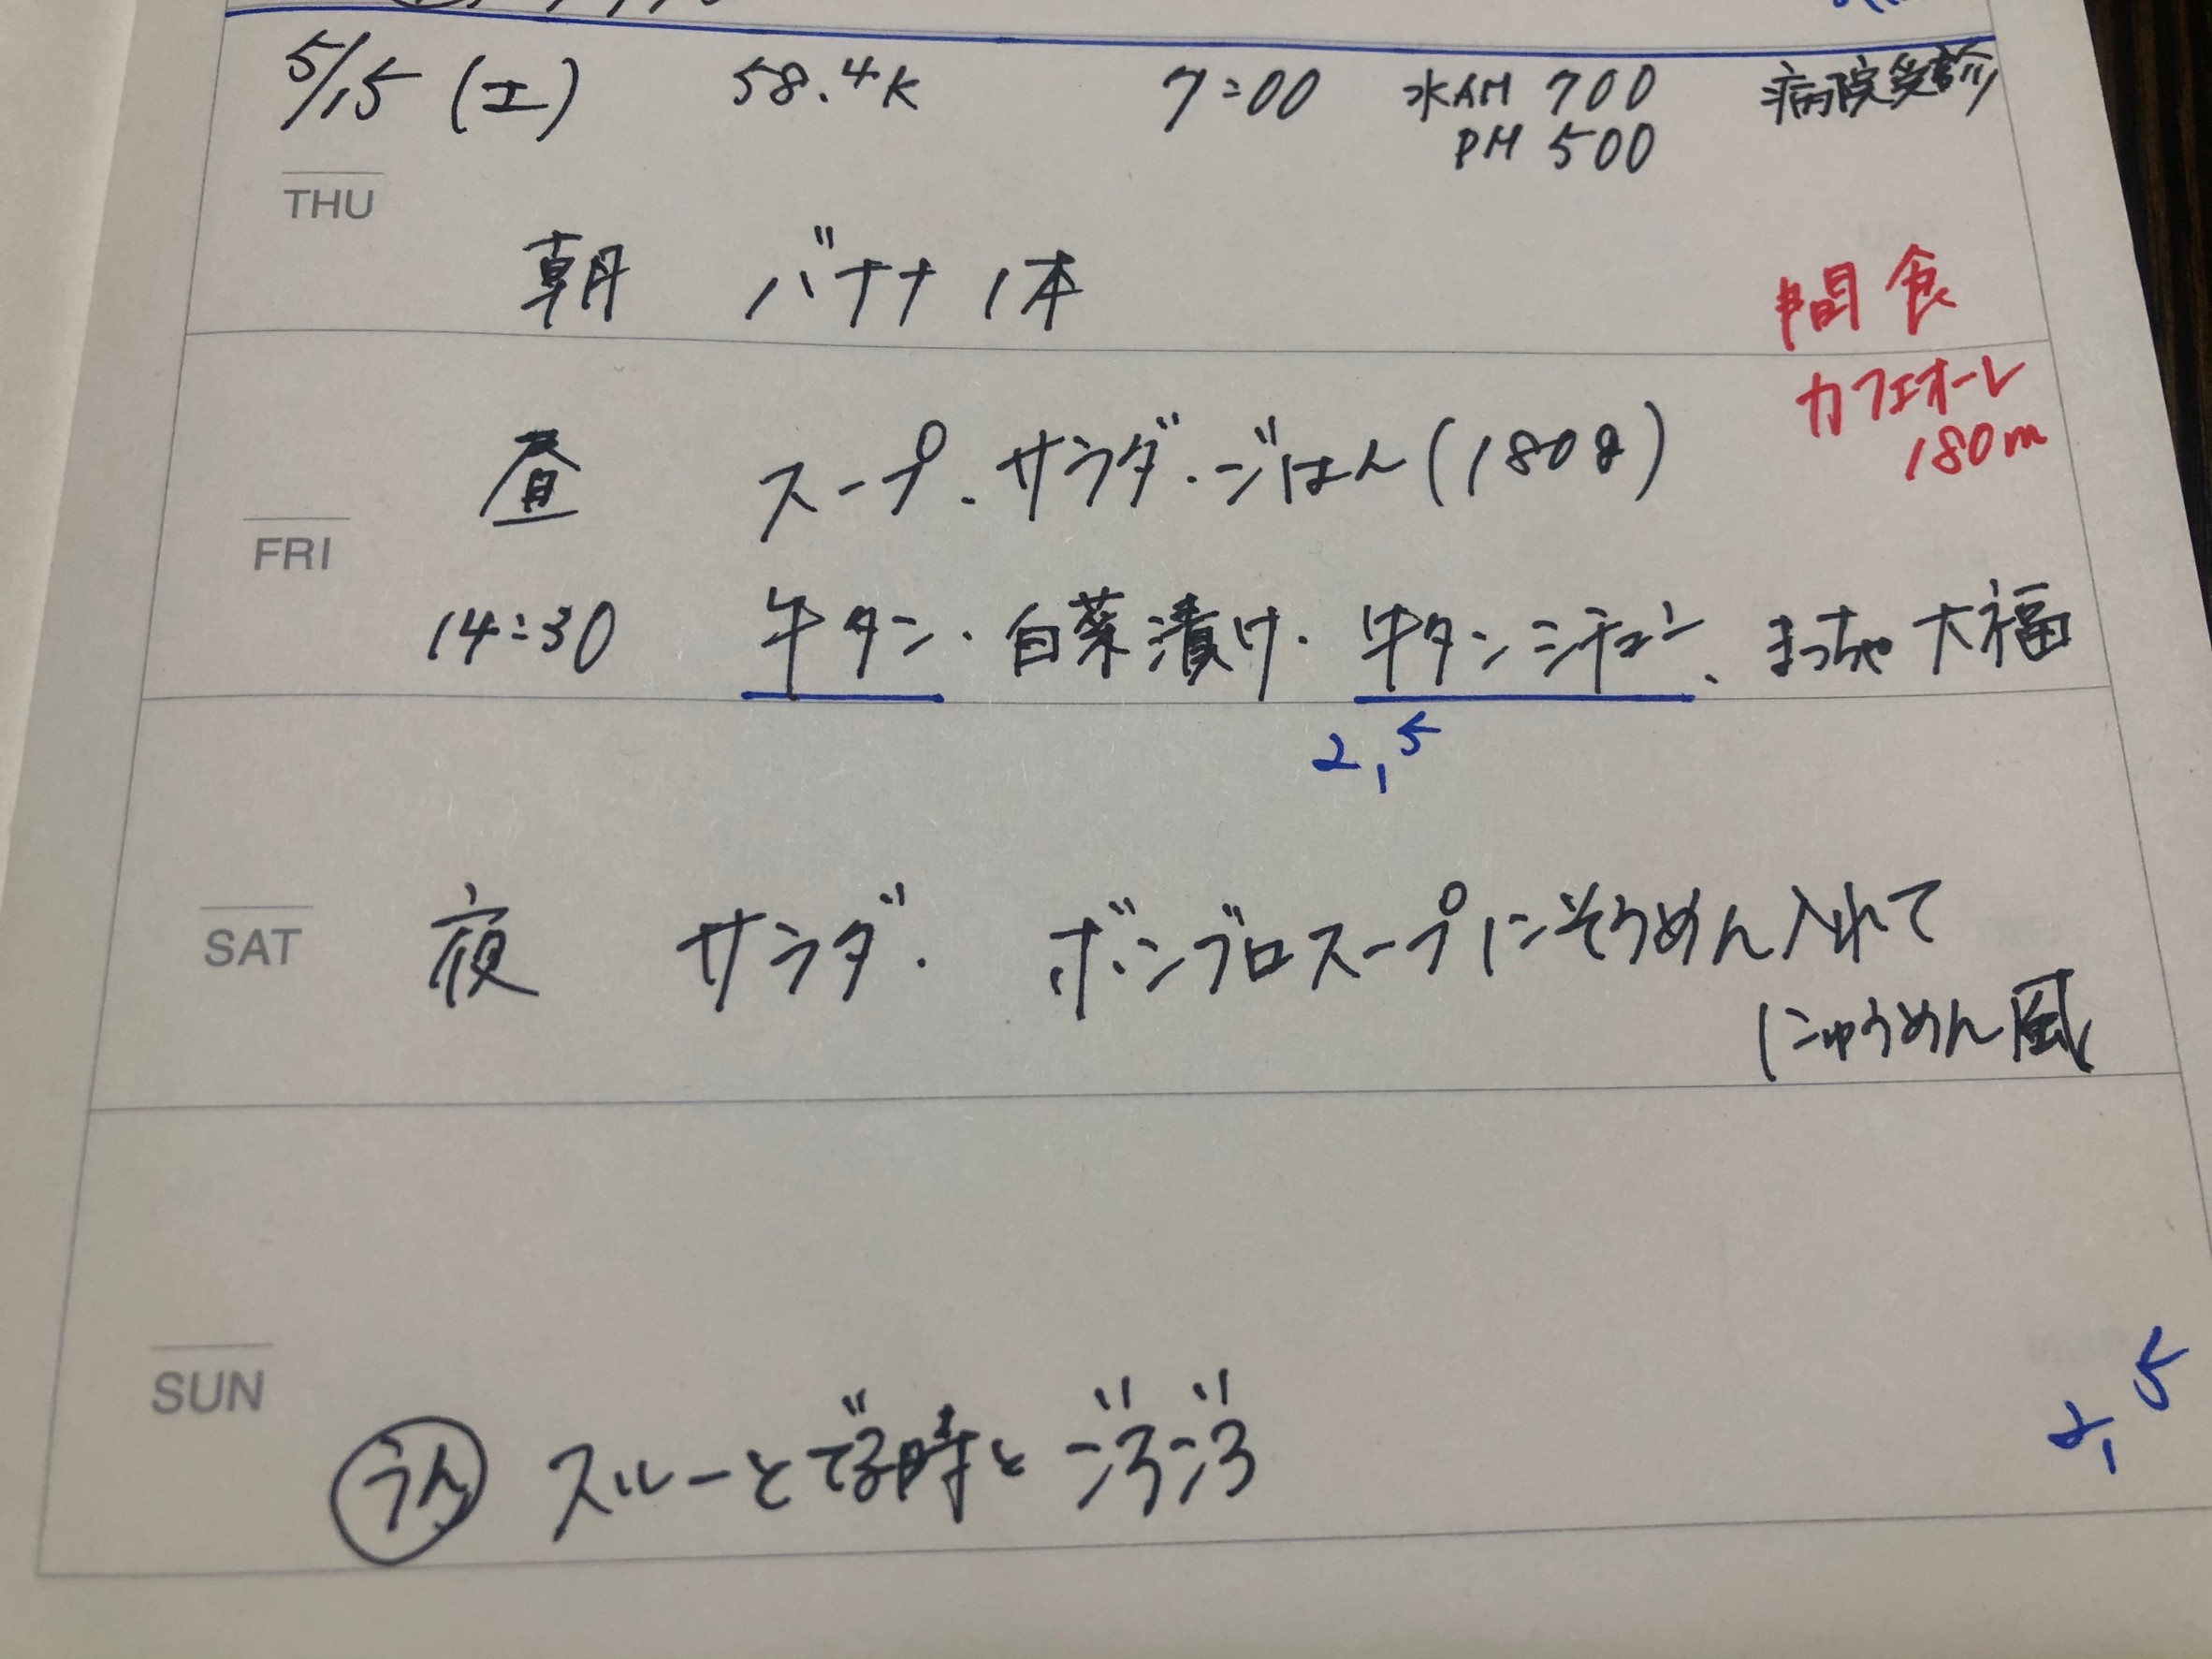 5/15 (土) 58.4K 7:00 水AM 700 病院受診
PM 500
THU
朝 バナナ 1本
間食
カフェオーレ
180m
昼 スープ、サラダ・ごはん(180g)
FRI
14:30 牛タン・白菜漬け・牛タンシチュー、まっちゃ大福
2,5
SAT
夜 サラダ・ボンブロスープにそうめん入れて
にゅうめん風
SUN
2,5
うん スルーとでる時とごろごろ